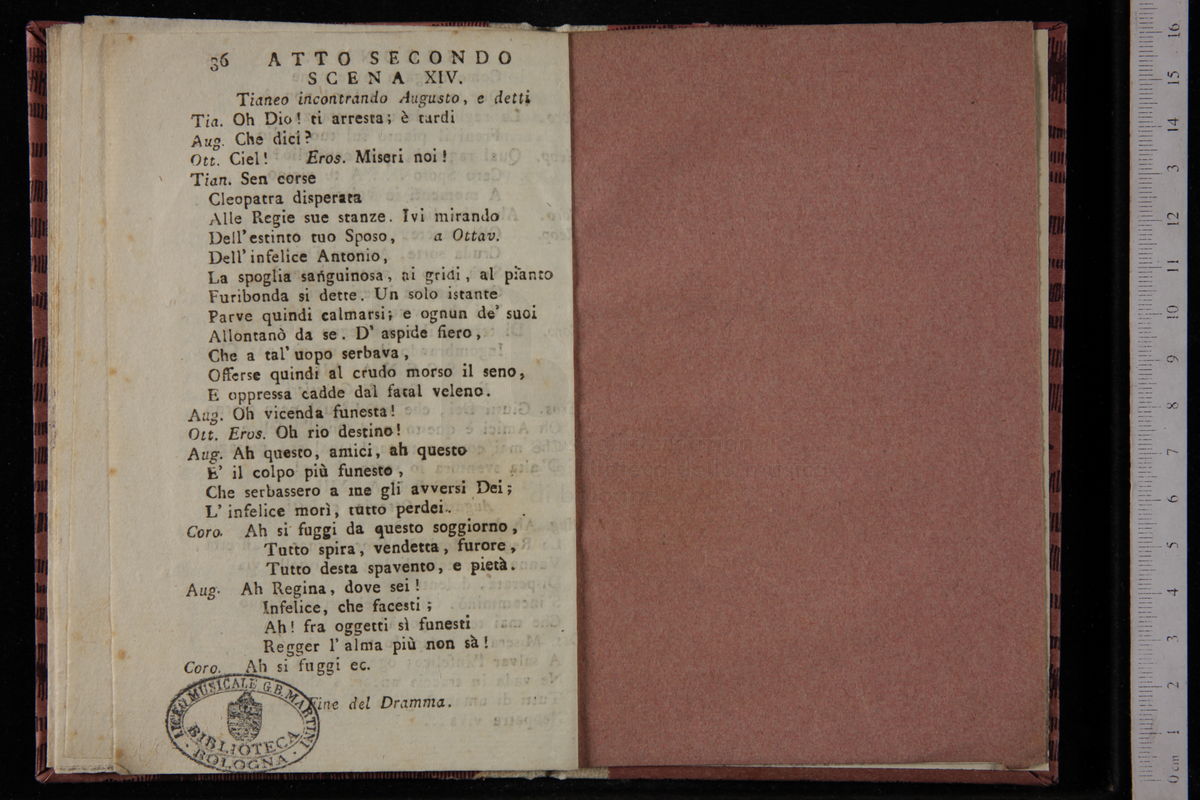 36 ATTO SECONDO
SCENA XIV.
Tianeo incontrando Augusto, e detti
Tia. Oh Dio! ti arresta; è tardi
Aug. Che dici?
Ott. Ciel! Eros. Miseri noi!
Tian. Sen corse
Cleopatra disperata
Alle Regie sue stanze. Ivi mirando
Dell'estinto tuo Sposo, a Ottav.
Dell'infelice Antonio,
La spoglia sanguinosa, ai gridi, al pianto
Furibonda si dette. Un solo istante
Parve quindi calmarsi; e ognun de' suoi
Allontanò da se. D' aspide fiero,
Che a tal' uopo serbava,
Offerse quindi al crudo morso il seno,
E oppressa cadde dal fatal veleno.
Aug. Oh vicenda funesta!
Ott. Eros. Oh rio destino!
Aug. Ah questo, amici, ah questo
E' il colpo più funesto,
Che serbassero a me gli avversi Dei;
L' infelice morì, tutto perdei.
Coro. Ah si fuggi da questo soggiorno,
Tutto spira, vendetta, furore,
Tutto desta spavento, e pietà.
Aug. Ah Regina, dove sei!
Infelice, che facesti;
Ah! fra oggetti sì funesti
Regger l' alma più non sà!
Coro. Ah si fuggi ec.
Fine del Dramma.
LICEO MUSICALE G.B. MARTINI
BIBLIOTECA
BOLOGNA
16
15
14
3
12
11
10
9
8
7
6
5
4
3
2
1
0 cm